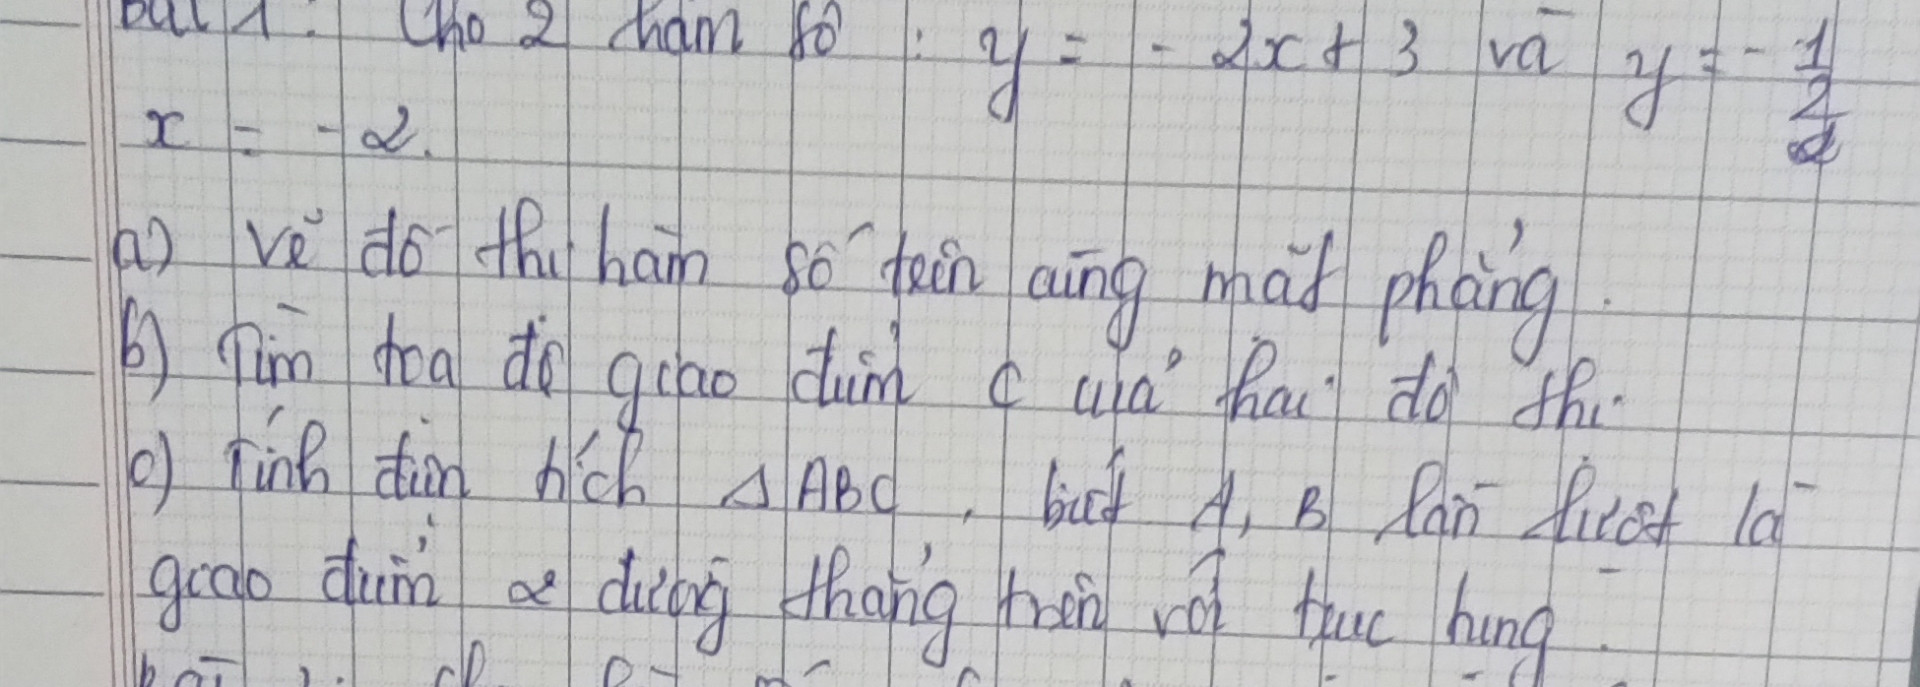 bài 1: Cho 2 hàm số : y = - 2x + 3 và y = - 1/2
x = - 2.
a) vẽ đồ thị hàm số trên cùng mặt phẳng.
b) Tìm toạ độ giao điểm C của hai đồ thị.
c) Tính diện tích △ABC, biết A, B lần lượt là
giao điểm 2 đường thẳng trên với trục tung.